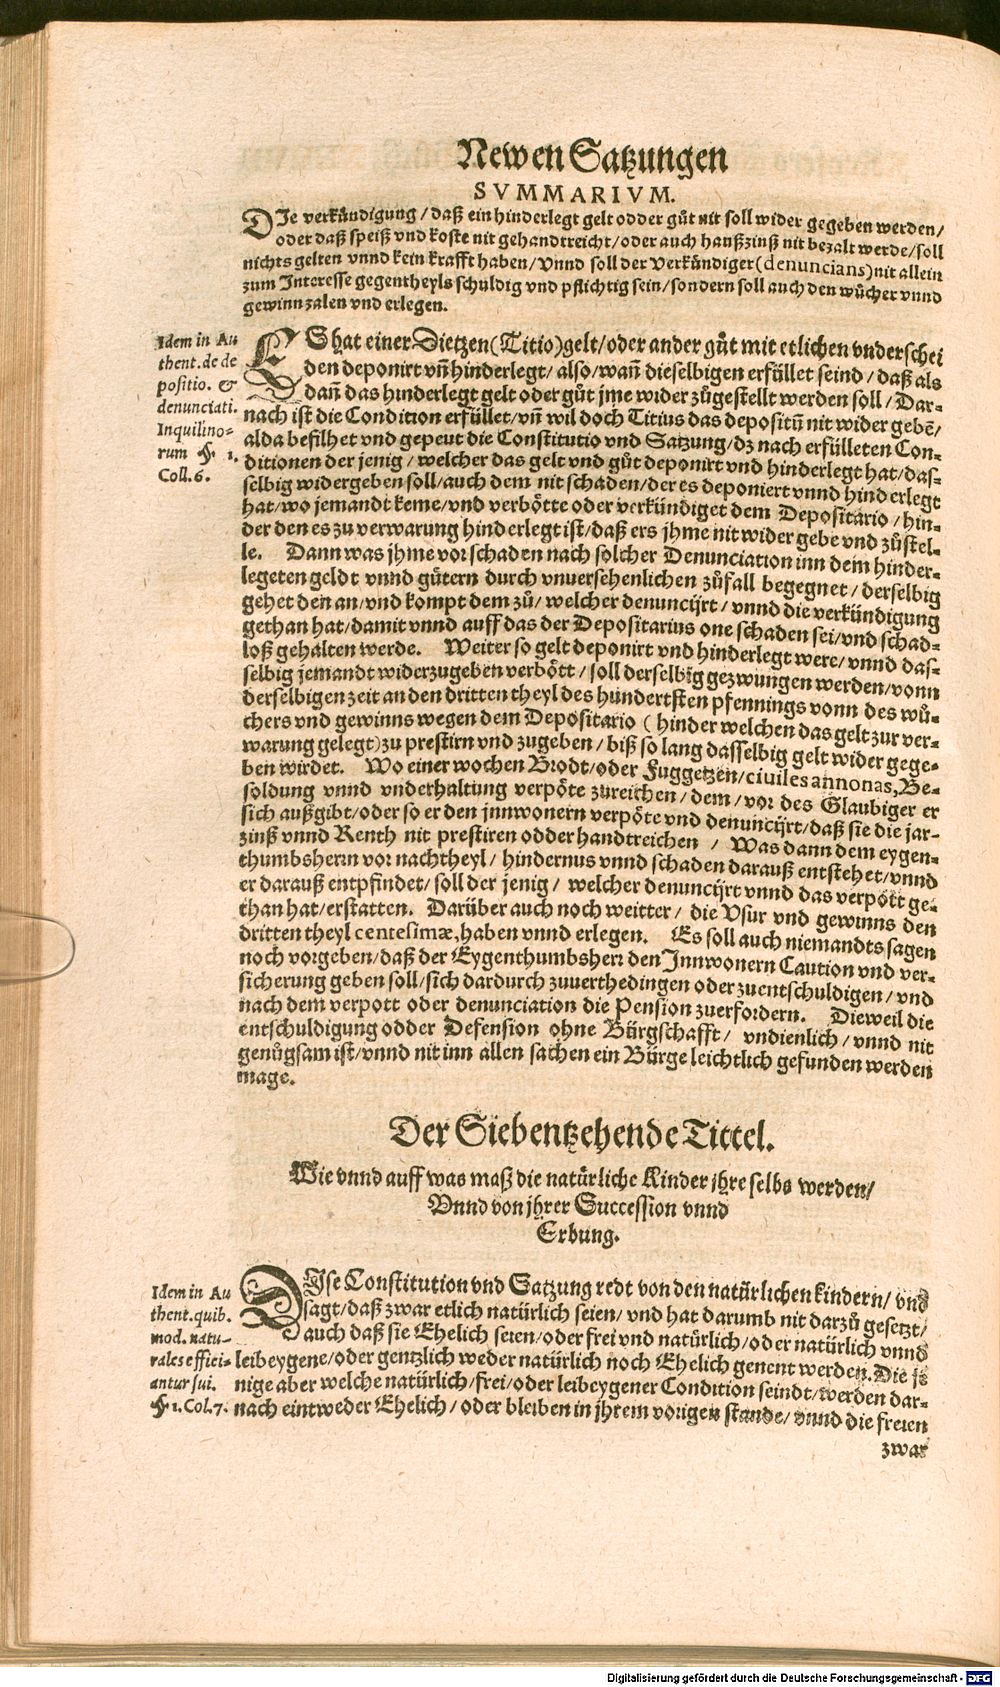 Newen Satzungen
SVMMARIVM.
DIe verkündigung / daß ein hinderlegt gelt odder gůt nit soll wider gegeben werden /
oder daß speiß vnd koste nit gehandtreicht / oder auch haußzinß nit bezalt werde / soll
nichts gelten vnnd kein krafft haben / Vnnd soll der Verkündiger (denuncians) nit allein
zum Interesse gegentheyls schuldig vnd pflichtig sein / sondern soll auch den wůcher vnnd
gewinn zalen vnd erlegen.
Idem in Au
thent. de de
positio. &
denunciati.
Inquilino-
rum §. 1.
Coll. 6.
ES hat einer Dietzen (Titio) gelt / oder ander gůt mit etlichen vnderschei
den deponirt vñ hinderlegt / also / wañ dieselbigen erfüllet seind / daß als
dañ das hinderlegt gelt oder gůt jme wider zůgestellt werden soll / Dar-
nach ist die Condition erfüllet / vñ wil doch Titius das depositũ nit wider gebẽ /
alda befilhet vnd gepeut die Constitutio vnd Satzung / dz nach erfülleten Con-
ditionen der jenig / welcher das gelt vnd gůt deponirt vnd hinderlegt hat / das-
selbig widergeben soll / auch dem nit schaden / der es deponiert vnnd hinderlegt
hat / wo jemandt keme / vnd verbötte oder verkündiget dem Depositario / hin-
der den es zu verwarung hinderlegt ist / daß ers jhme nit wider gebe vnd zůstel-
le. Dann was jhme vor schaden nach solcher Denunciation inn dem hinder-
legeten geldt vnnd gütern durch vnuersehenlichen zůfall begegnet / derselbig
gehet den an / vnd kompt dem zů / welcher denuncijrt / vnnd die verkündigung
gethan hat / damit vnnd auff das der Depositarius one schaden sei / vnd schad-
loß gehalten werde. Weiter so gelt deponirt vnd hinderlegt were / vnnd das-
selbig jemandt widerzugeben verbött / soll derselbig gezwungen werden / vonn
derselbigen zeit an den dritten theyl des hundertsten pfennings vonn des wů-
chers vnd gewinns wegen dem Depositario ( hinder welchen das gelt zur ver-
warung gelegt) zu prestirn vnd zugeben / biß so lang dasselbig gelt wider gege-
ben wirdet. Wo einer wochen Brodt / oder Fuggetzen / civiles annonas, Be-
soldung vnnd vnderhaltung verpöte zureichen / dem / vor des Glaubiger er
sich außgibt / oder so er den jnnwonern verpöte vnd denuncijrt / daß sie die jar-
zinß vnnd Renth nit prestiren odder handtreichen / Was dann dem eygen-
thumbsherrn vor nachtheyl / hindernus vnnd schaden darauß entstehet / vnnd
er darauß entpfindet / soll der jenig / welcher denuncijrt vnnd das verpott ge-
than hat / erstatten. Darüber auch noch weitter / die Vsur vnd gewinns den
dritten theyl centesimæ, haben vnnd erlegen. Es soll auch niemandts sagen
noch vorgeben / daß der Eygenthumbsherr den Jnnwonern Caution vnd ver-
sicherung geben soll / sich dardurch zuuerthedingen oder zuentschuldigen / vnd
nach dem verpott oder denunciation die Pension zuerfordern. Dieweil die
entschuldigung odder Defension ohne Bürgschafft / vndienlich / vnnd nit
genůgsam ist / vnnd nit inn allen sachen ein Bürge leichtlich gefunden werden
mage.
Der Siebentzehende Tittel.
Wie vnnd auff was maß die natürliche Kinder jhre selbs werden /
Vnnd von jhrer Succession vnnd
Erbung.
Idem in Au
thent. quib.
mod. natu-
rales effici-
antur sui.
§. 1. Col. 7.
DIse Constitution vnd Satzung redt von den natürlichen kindern / vnd
sagt / daß zwar etlich natürlich seien / vnd hat darumb nit darzů gesetzt /
auch daß sie Ehelich seien / oder frei vnd natürlich / oder natürlich vnnd
leibeygene / oder gentzlich weder natürlich noch Ehelich genent werden. Die je
nige aber welche natürlich / frei / oder leibeygener Condition seindt / werden dar-
nach eintweder Ehelich / oder bleiben in jhrem vorigen stande / vnnd die freien
zwar
Digitalisierung gefördert durch die Deutsche Forschungsgemeinschaft - DFG